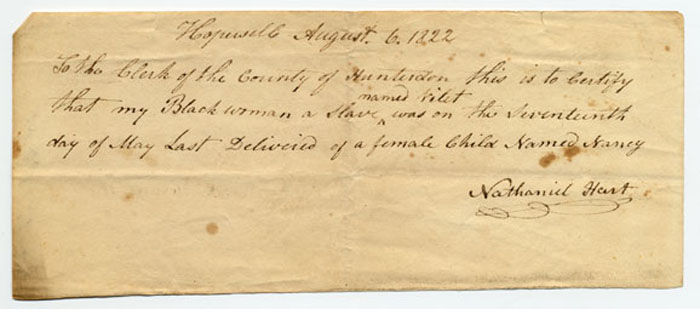 Hopewell August 6. 1822
To the Clerk of the County of Hunterdon this is to Certify
named Vilet
that my Black woman a Slave ^ was on the Seventeenth
day of May Last Delivered of a female Child Named Nancy
Nathaniel Hart